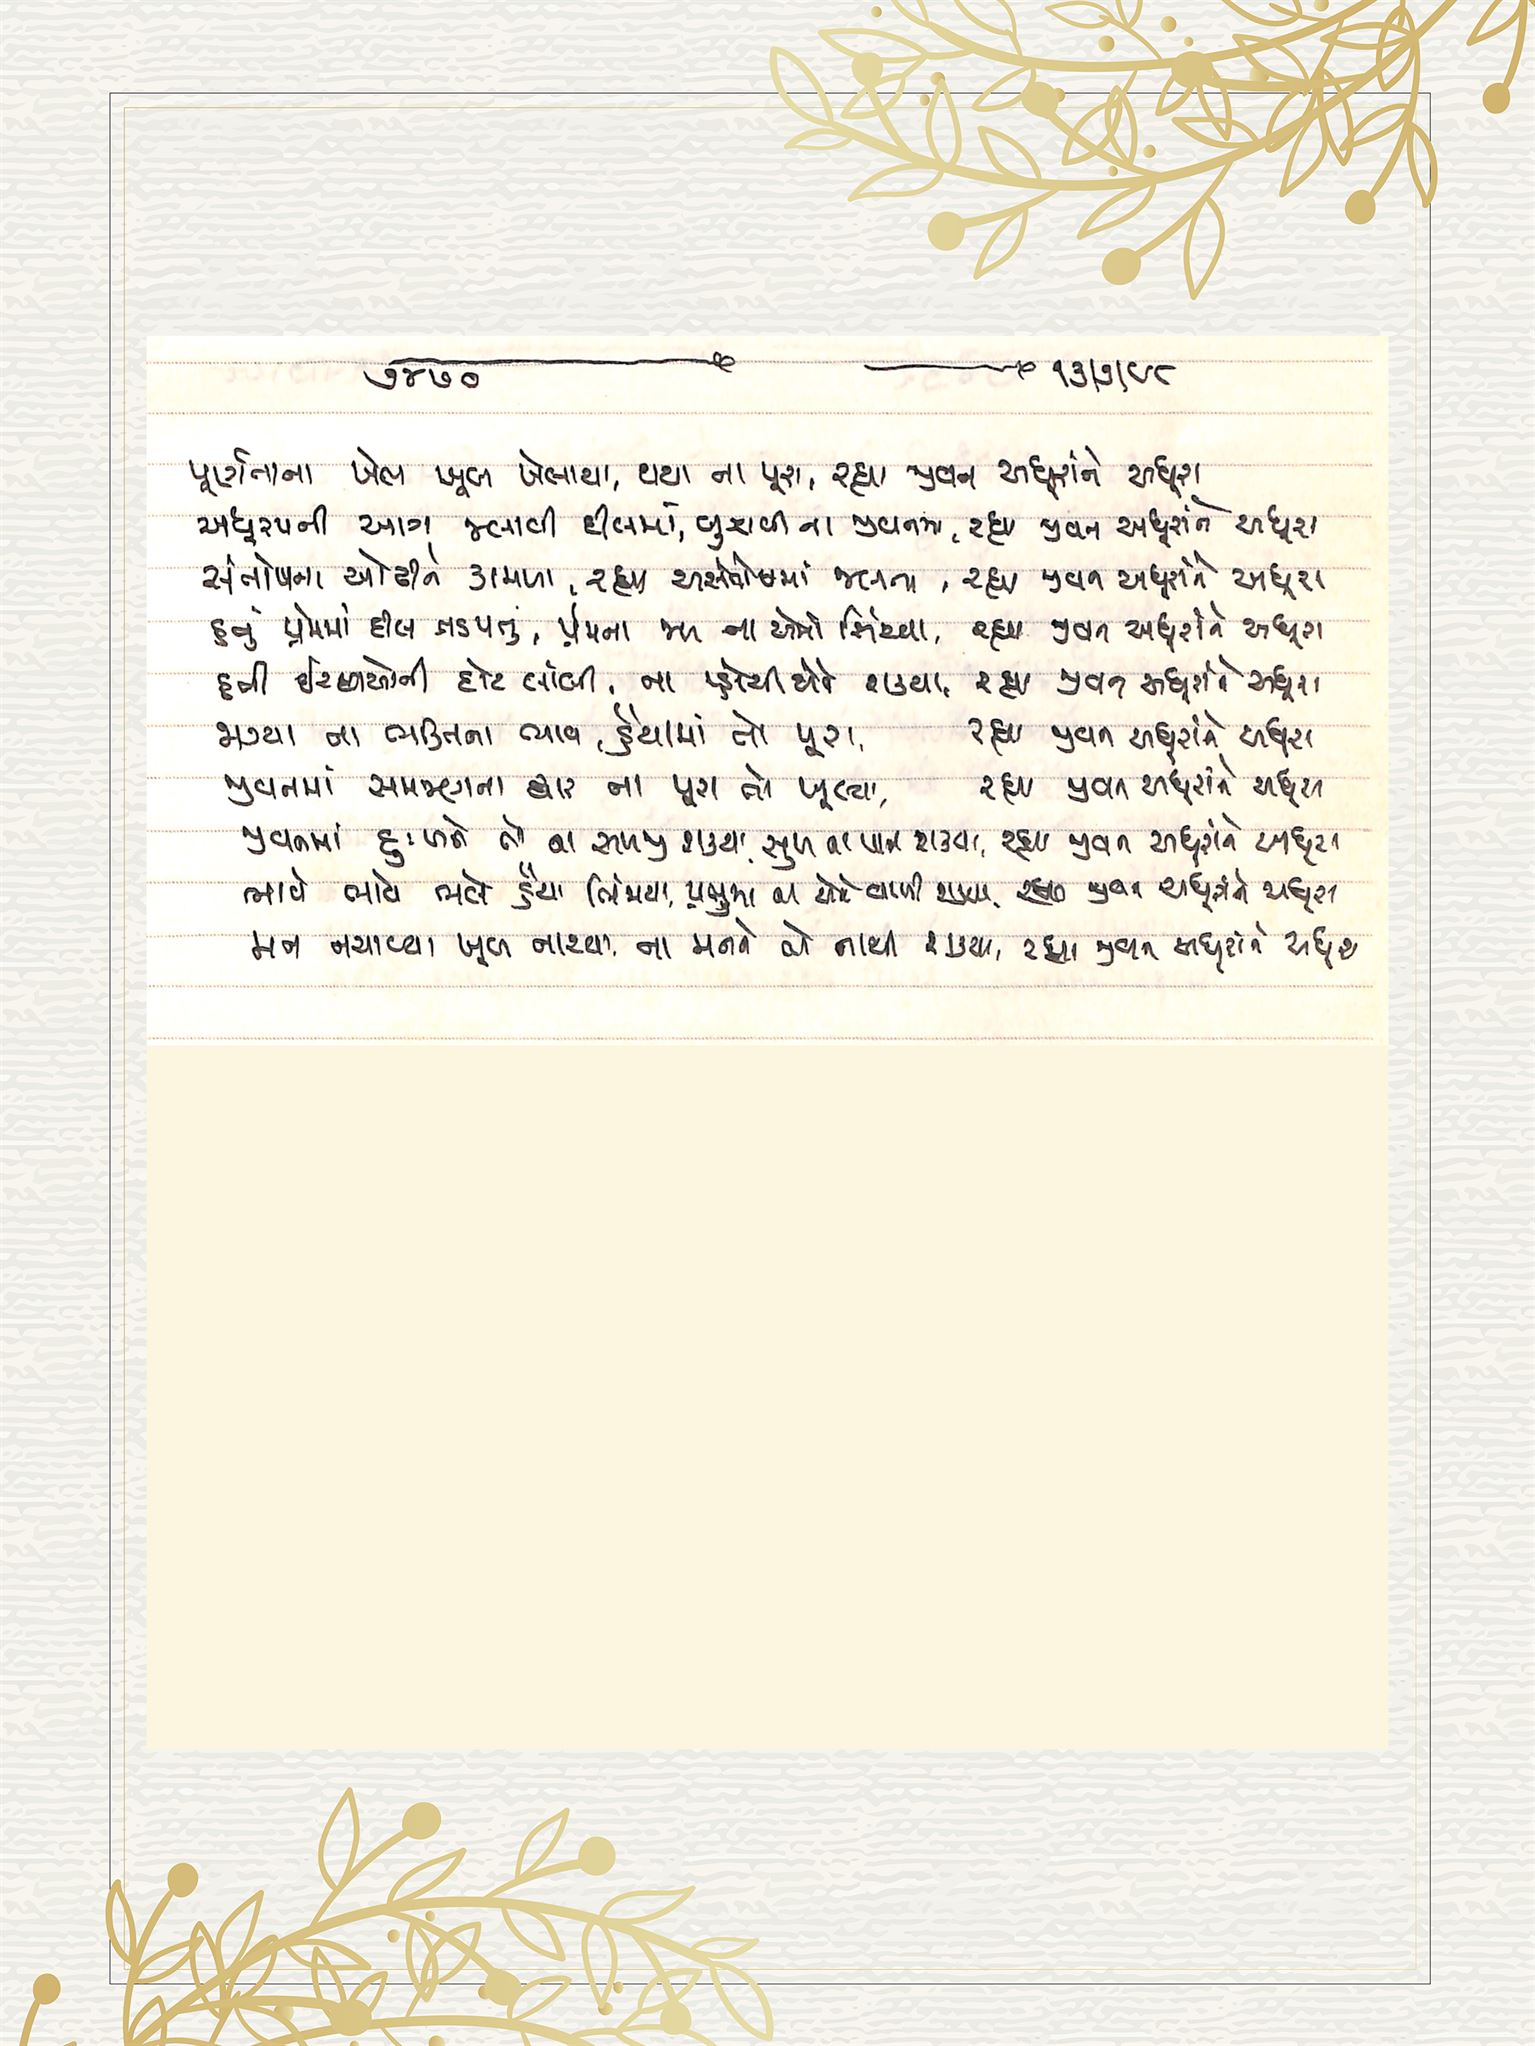 ૭૪૭૦ ૧૩/૭/૯૮
પૂર્ણતાના ખેલ ખૂબ ખેલાયા, થયા ના પૂરા, રહ્યા જીવન અધૂરાંને અધૂરા
અધૂરપની આગ જલાવી દીલમાં, બુઝાવી ના જીવનમાં, રહ્યા જીવન અધૂરાંને અધૂરા
સંતોષના ઓઢીને કામળા, રહ્યા અસંતોષમાં જલતા, રહ્યા જીવન અધૂરાંને અધૂરા
હતું પ્રેમમાં દીલ તડપતું, પ્રેમના જળ ના એમાં સિંચ્યા, રહ્યા જીવન અધૂરાંને અધૂરા
હતી ઈચ્છાઓની દોટ લાંબી, ના પ્હોંચી એને શક્યા, રહ્યા જીવન અધૂરાંને અધૂરા
જાગ્યા ના ભક્તિના ભાવ, હૈયામાં તો પૂરા, રહ્યા જીવન અધૂરાંને અધૂરા
જીવનમાં સમજણના દ્વાર ના પૂરા તો ખૂલ્યા, રહ્યા જીવન અધૂરાંને અધૂરા
જીવનમાં દુઃખને તો ના સમજી શક્યા, સુખ ના પામી શક્યા, રહ્યા જીવન અધૂરાંને અધૂરા
ભાવે ભાવે ભલે હૈયા ભિંજાયા, પ્રભુમાં ના એને વાળી શક્યા, રહ્યા જીવન અધૂરાંને અધૂરા
મન નચાવ્યા ખૂબ નાચ્યા, ના મનને તો નાથી શક્યા, રહ્યા જીવન અધૂરાંને અધૂરા